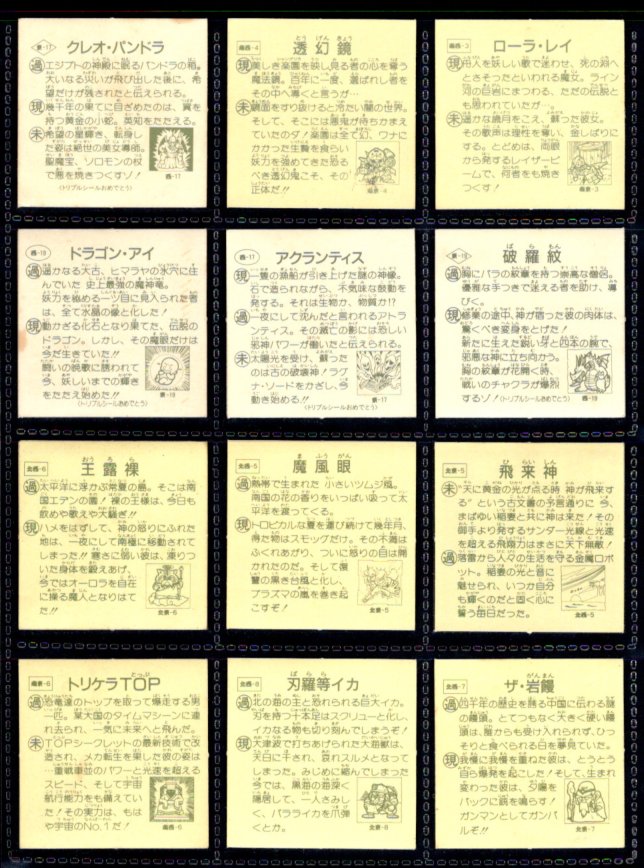 東-17
クレオ・パンドラ
過 エジプトの神殿に眠るパンドラの箱。
大いなる災いが飛び出した後に、希
望だけが残されたと伝えられる。
現 幾千年の果てに目ざめたのは、翼を
持つ黄金の小蛇。英知をたたえる。
未 希望の星輝き、転身し
た姿は絶世の美女導師。
聖魔宝、ソロモンの杖
で悪を焼きつくす!!
西-17
(トリプルシールおめでとう)
南西-4
透幻鏡
過 美しき楽園を映し見る者の心を奪う
魔法鏡。百年に一度、選ばれし者を
その中へ導くと言うが…
現 鏡面をすり抜けると冷たい闇の世界。
そして、そこには悪鬼が待ちかまえ
ていたのダ!楽園は全て幻、ワナに
かかった生贄を食らい
妖力を強めてきた恐る
べき透幻鬼こそ、その
正体だ!!
南東-4
南西-3
ローラ・レイ
現 舟人を妖しい歌で迷わせ、死の淵へ
とさそったといわれる魔女。ライン
河の巨岩にまつわる、ただの伝説と
も思われていたが…
未 遥かな歳月をこえ、蘇った彼女。
その歌声は理性を奪い、金しばりに
する。とどめは、両眼
から発するレイザービ
ームで、何者をも焼き
つくす!
南東-3
西-19
ドラゴン・アイ
過 遥かなる大古、ヒマラヤの氷穴に住
んでいた 史上最強の魔神竜。
妖力を秘める一ツ目に見入られた者
は、全て水晶の像と化した!
現 動かざる化石となり果てた、伝説の
ドラゴン。しかし、その魔眼だけは
今だ生きていた!!
闘いの晩歌に誘われて
今、妖しいまでの輝き
をたたえ始めた!!
東-19
(トリプルシールおめでとう)
西-17
アクランティス
現 一隻の漁船が引き上げた謎の神像。
石で造られながら、不気味な鼓動を
発する。それは生物か、物質か!?
過 一夜にして沈んだと言われるアトラ
ンティス。その滅亡の影には恐しい
邪神パワーが働いたと伝えられる。
未 太陽光を受け、蘇った
のは古の破壊神!ラグ
ナ・ソードをかざし、今
動き始める!!
東-17
(トリプルシールおめでとう)
東-19
破羅紋
過 胸にバラの紋章を持つ崇高な僧侶。
優雅な手つきで迷える者を助け、導
びく。
現 修業の途中、神が宿った彼の肉体は、
驚くべき変身をとげた!
新たに生えた鋭い牙と四本の腕で、
邪悪な神に立ち向かう。
胸の紋章が花開く時、
戦いのチャクラが爆烈
するゾ!
西-19
(トリプルシールおめでとう)
北西-6
王露裸
過 太平洋に浮かぶ常夏の島。そこは南
国エデンの園!裸の王様は、今日も
飲めや歌えや大騒ぎ!!
現 ハメをはずして、神の怒りにふれた
地は、一夜にして南極に移動されて
しまった!!寒さに弱い彼は、凍りつ
いた身体を鍛えあげ、
今ではオーロラを自在
に操る魔人となりはて
た!!
北東-6
北西-5
魔風眼
過 熱帯で生まれた 小さいツムジ風。
南国の花の香りをいっぱい吸って太
平洋を渡ってくる。
現 トロピカルな夏を運び続けて幾年月、
得た物はスモッグだけ。その不満は
ふくれあがり、ついに怒りの目は開
かれたのだ。そして復
讐の黒き台風と化し、
プラズマの嵐を巻き起
こすぞ!
北東-5
北西-5
飛来神
未 "天に黄金の光が点る時 神が飛来す
る"という古文書の予言通りに 今、
まばゆい稲妻と共に神は来た!その
御手より発するサンダー光線と光速
を超える飛翔力はまさに天下無敵!
過 落雷から人々の生活を守る金属ロボ
ット。稲妻の光と音に
魅せられ、いつか自分
も輝くのだと固く心に
誓う毎日だった。
北東-5
南東-6
トリケラTOP
過 恐竜達のトップを取って爆走する男
一匹。某大国のタイムマシーンに連
れ去られ、一気に未来へと飛んだ。
未 TOPシークレットの最新技術で改
造され、メカ転生を果した彼の姿は
…重戦車並のパワーと光速を超える
スピード、そして宇宙
航行能力をも備えてい
た!その実力は、もは
や宇宙のNo.1だ!
南西-6
北西-8
刃羅等イカ
過 北の海の主と恐れられる巨大イカ。
刃を持つ十本足はスクリューと化し、
イカなる物も切り刻んでしまうぞ!
現 大津波で打ちあげられた大海獣は、
天日に干され、哀れスルメとなって
しまった。みじめに縮んでしまった
今では、黒海の海深く
隠居して、一人さみし
く、バラライカを爪弾
くとか。
北東-8
北西-7
ザ・岩饅
過 四千年の歴史を誇る中国に伝わる謎
の饅頭。とてつもなく大きく硬い饅
頭は、誰からも受け入れられず、ひ
っそりと食べられる日を夢見ていた。
現 我慢に我慢を重ねた彼は、とうとう
自ら爆発を起こした!そして、生まれ
変わった彼は、夕陽を
バックに銃を鳴らす!
ガンマンとしてガンバ
ルぞ!!
北東-7